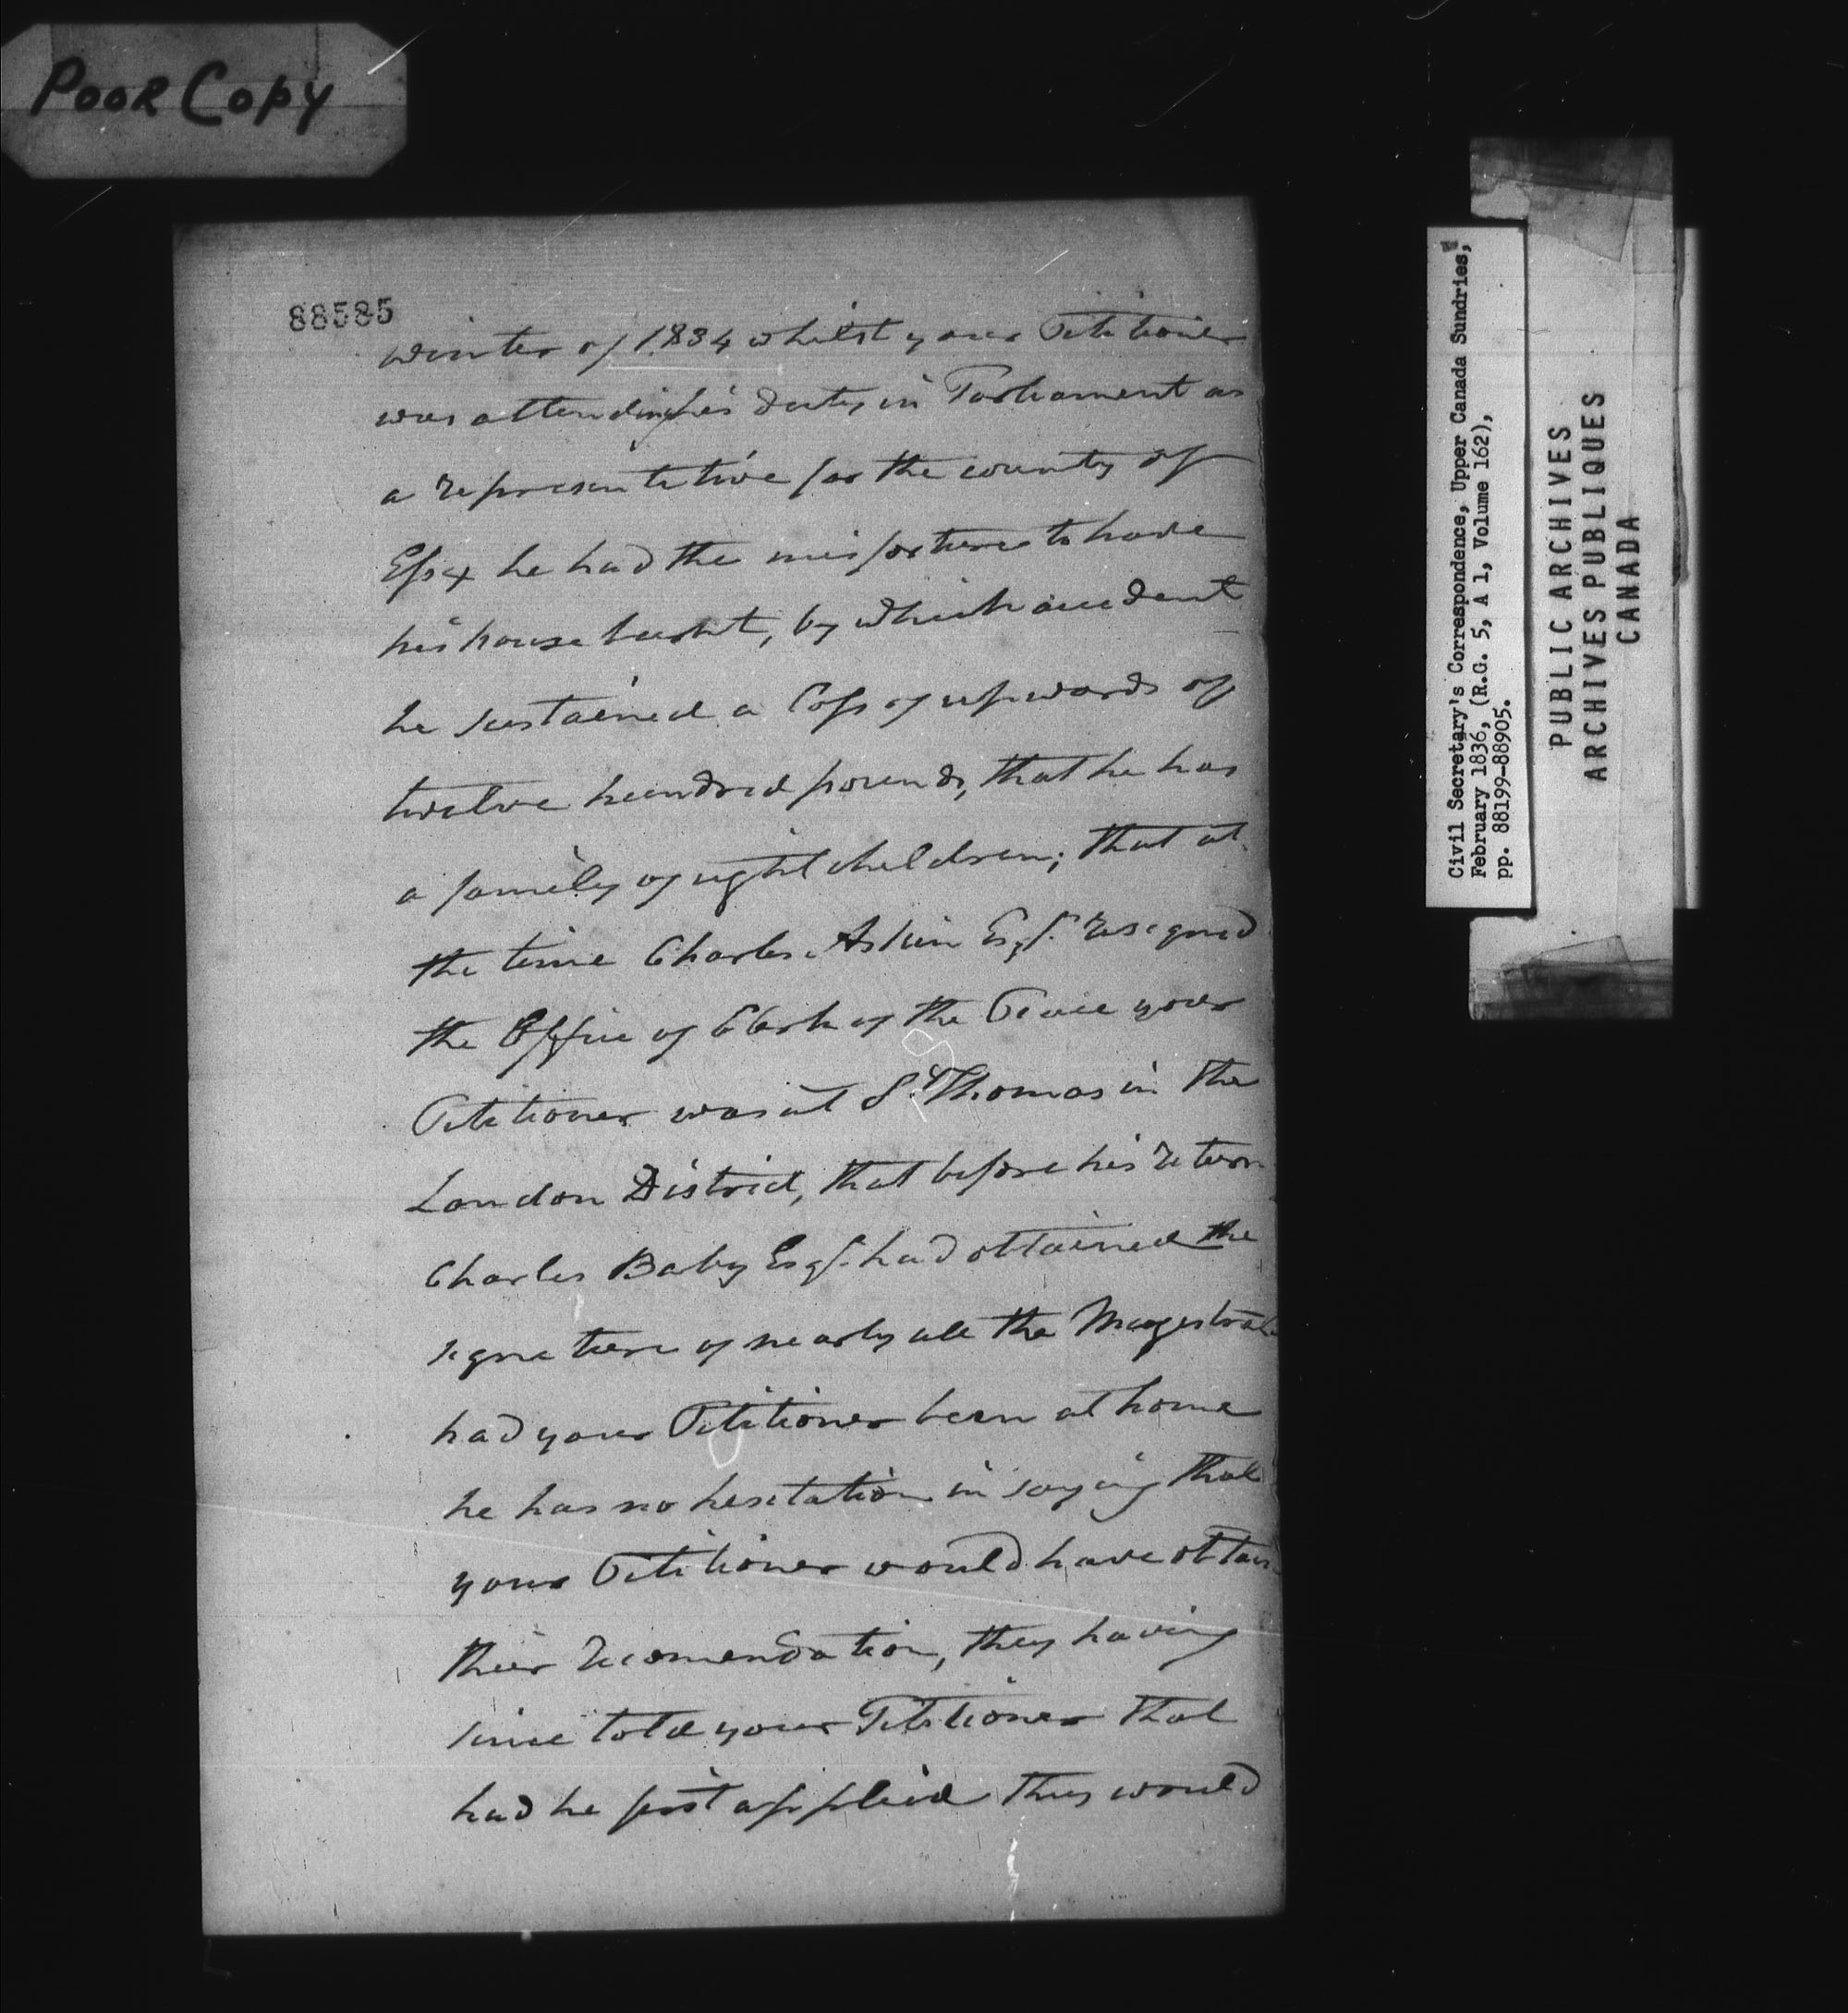 Poor Copy
88585
winter of 1834 whilst your Petitioner
was attending his duty in Parliament as
a representative for the county of
Essex he had the misfortune to have
his house burnt, by which accident
he sustained a loss of upwards of
twelve hundred pounds, that he has
a family of eight children; that at
the time Charles Askin Esqr. resigned
the Office of Clerk of the Peace your
Petitioner was at St Thomas in the
London District, that before his return
Charles Baby Esqr. had obtained the
signature of nearly all the Magestrates
had your Petitioner been at home
he has no hesitation in saying that
your Petitioner would have obtain
their recomendation, they having
since told your Petitioner that
had he first applied they would
Civil Secretary's Correspondence, Upper Canada Sundries,
February 1836, (R.G. 5, A 1, Volume 162),
pp. 88199-88905.
PUBLIC ARCHIVES
ARCHIVES PUBLIQUES
CANADA